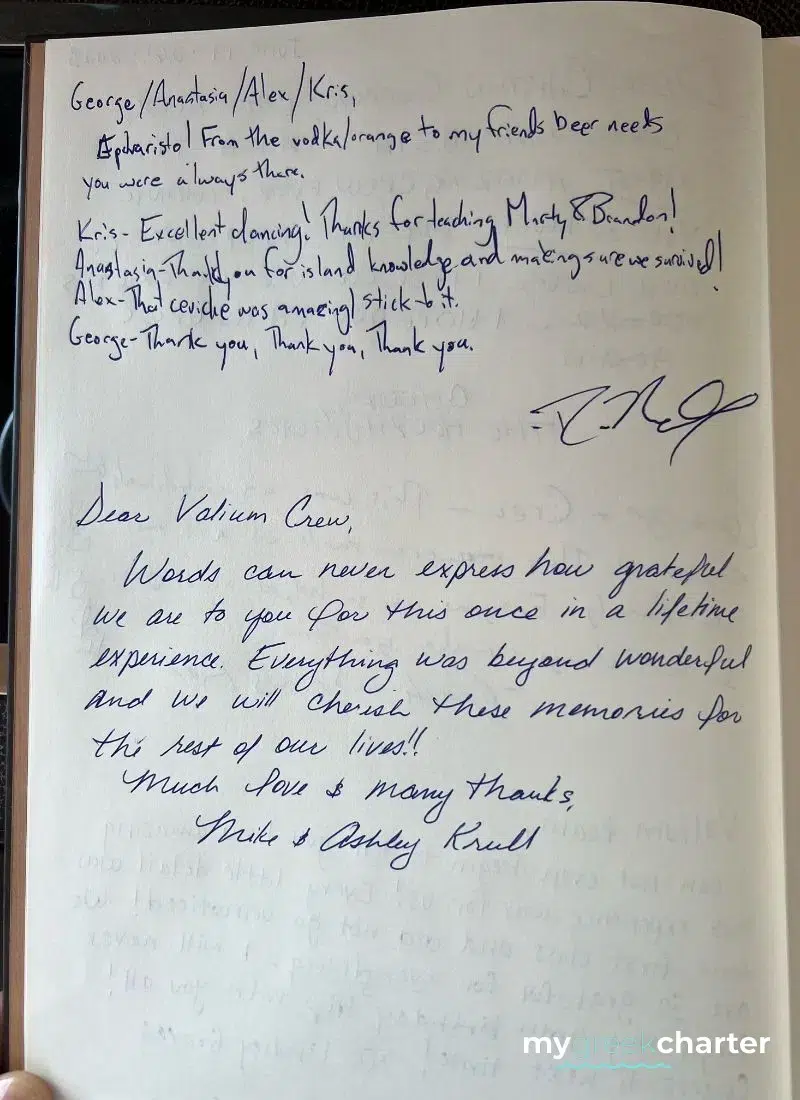 George/Anastasia/Alex/Kris,
Epharisto! From the vodka/orange to my friends beer needs
you were always there.
Kris- Excellent dancing! Thanks for teaching Marty & Brandon!
Anastasia-Thank you for island knowledge and making sure we survived!
Alex-That ceviche was amazing! stick to it.
George-Thank you, Thank you, Thank you.
Dear Valium Crew,
Words can never express how grateful
we are to you for this once in a lifetime
experience. Everything was beyond wonderful
and we will cherish these memories for
the rest of our lives!!
Much love & many thanks,
Mike & Ashley Krull
mygreekcharter